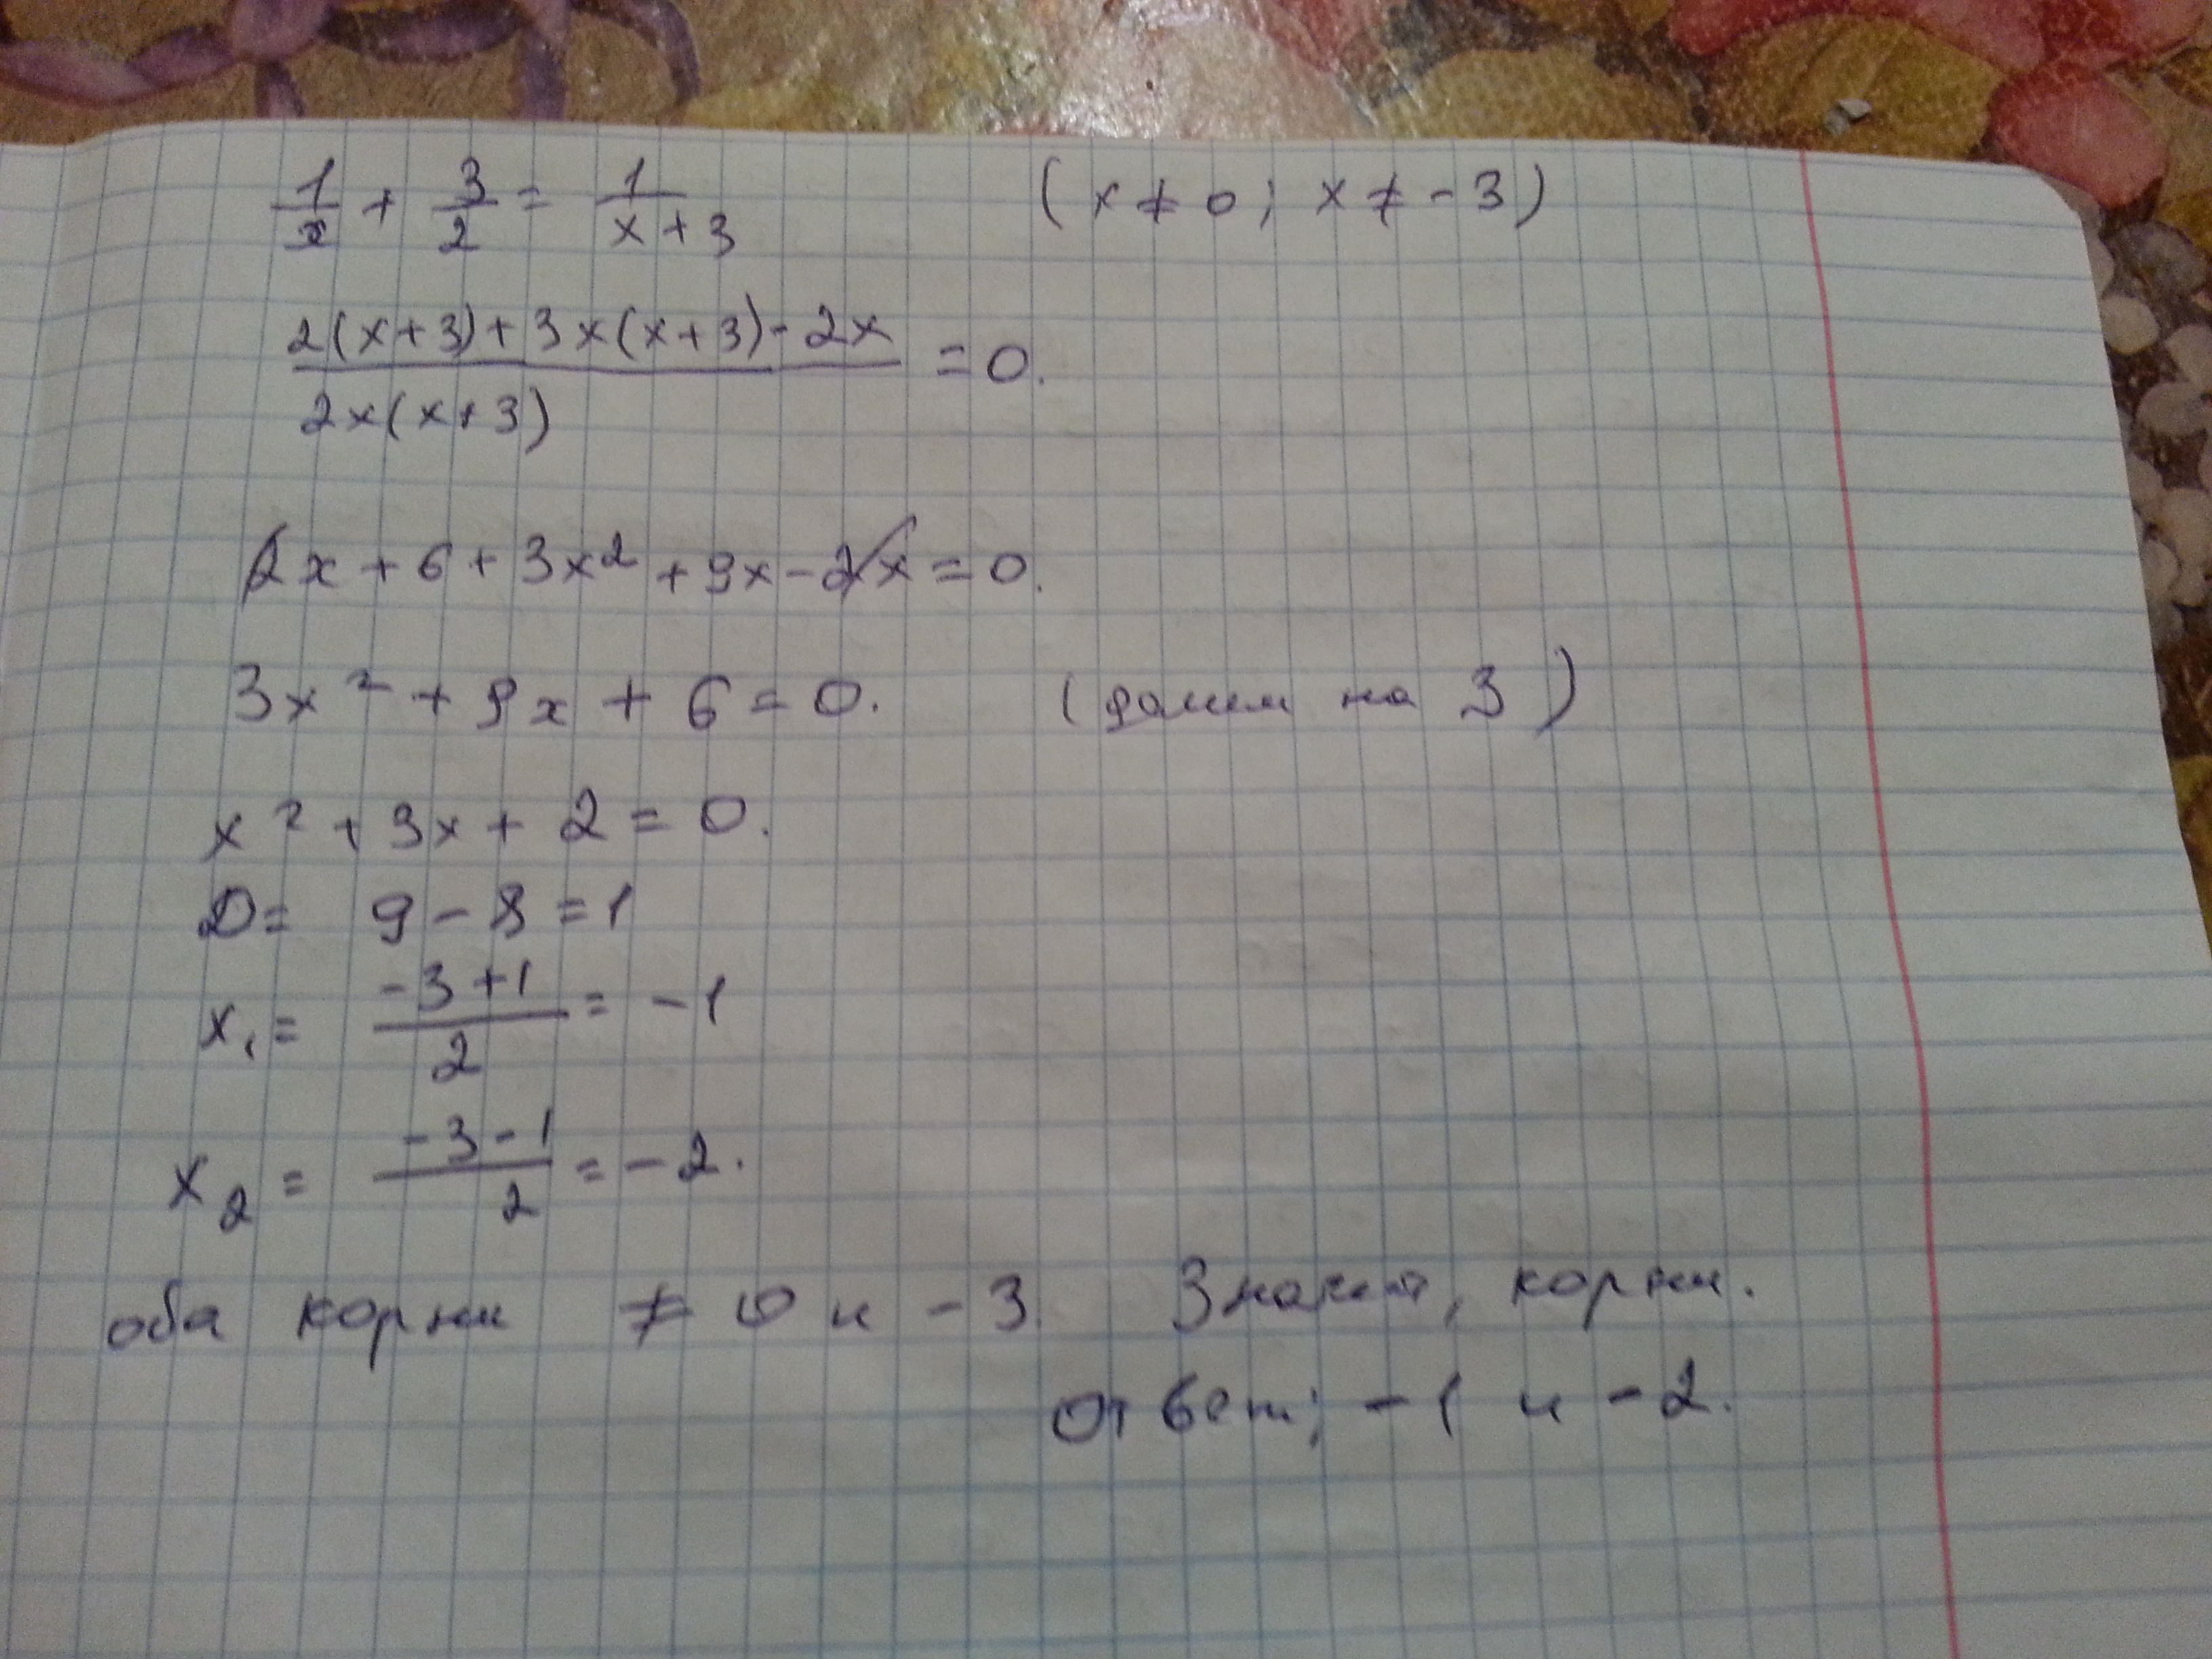 1/x + 3/2 = 1/(x+3) (x ≠ 0; x ≠ -3)
(2(x+3)+3x(x+3)-2x)/(2x(x+3)) = 0.
2x + 6 + 3x² + 9x - 2x = 0.
3x² + 9x + 6 = 0. (делим на 3)
x² + 3x + 2 = 0.
D = 9 - 8 = 1
x₁ = (-3+1)/2 = -1
x₂ = (-3-1)/2 = -2.
оба корни ≠ 0 и -3. Значит, корни.
Ответ; -1 и -2.